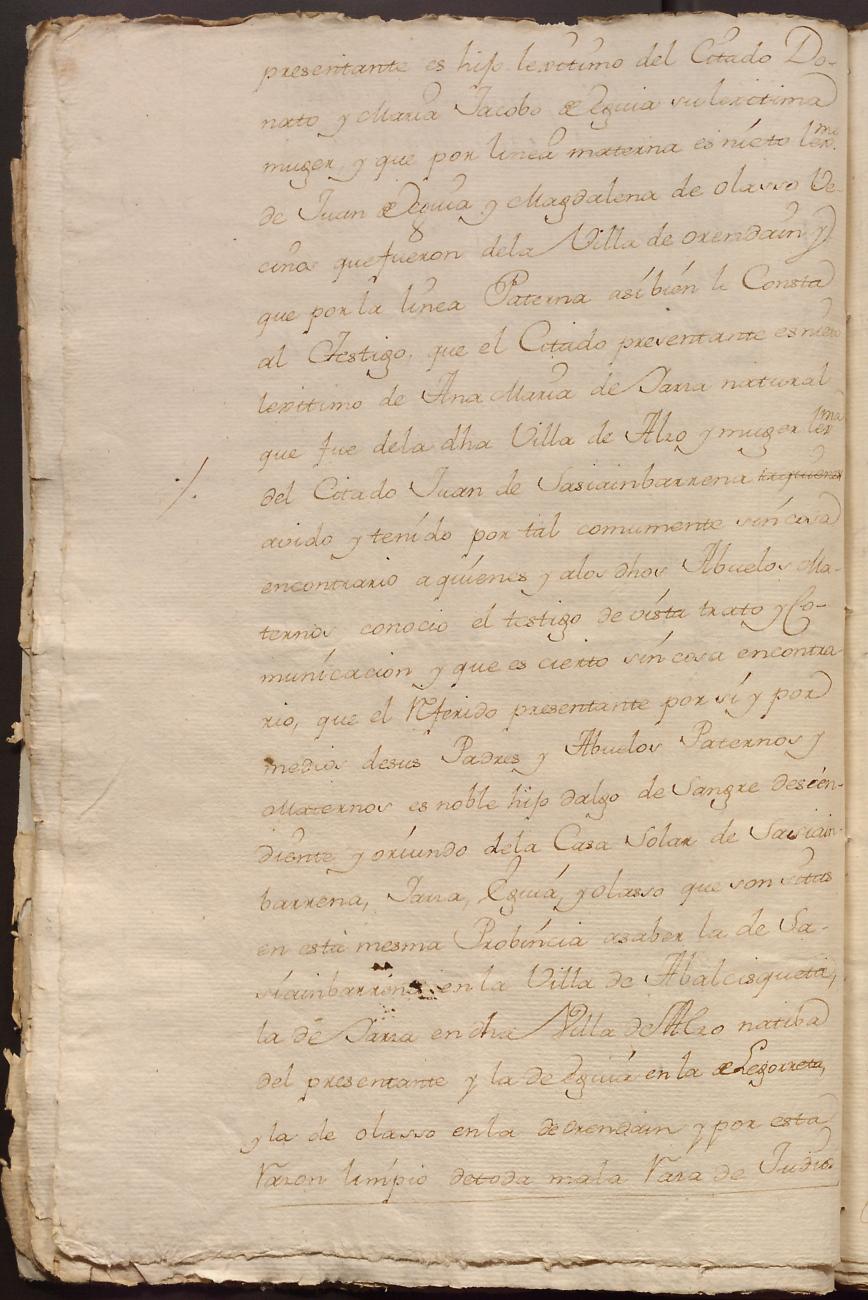 presentante es hijo lexitimo del Citado Do-
nato y Maria Jacobo de Eguia su lexitima
muger, y que por linea materna es nieto lex.mo
de Juan de Eguia y Magdalena de olasso Ve-
cinos que fueron dela Villa de orendain y
que por la linea Paterna asibien le Consta
al Testigo, que el Citado presentante es nieto
lexitimo de Ana Maria de Jarza natural
que fue dela dha Villa de Alzo y muger lex.ma
del Citado Juan de Sasiainbarrena
avido y tenido por tal comumente sin cosa
encontrario a quienes y alos dhos Abuelos Ma-
ternos conocio el testigo de vista trato y Co-
municacion y que es cierto sin cosa encontra-
rio, que el Referido presentante por si y por
medios desus Padres y Abuelos Paternos y
Maternos es noble hijo dalgo de Sangre descen-
diente y oriundo dela Casa Solar de Sasiain-
barrena, Jarza, Eguia, y olasso que son sitas
en esta mesma Probincia asaber la de Sa-
siainbarrena en la Villa de Abalcisqueta,
la de Jarza en dha Villa de Alzo natiba
del presentante y la de eguia en la de Legorreta,
y la de olasso enla de orendain y por esta
Razon limpio detoda mala Raza de Judios